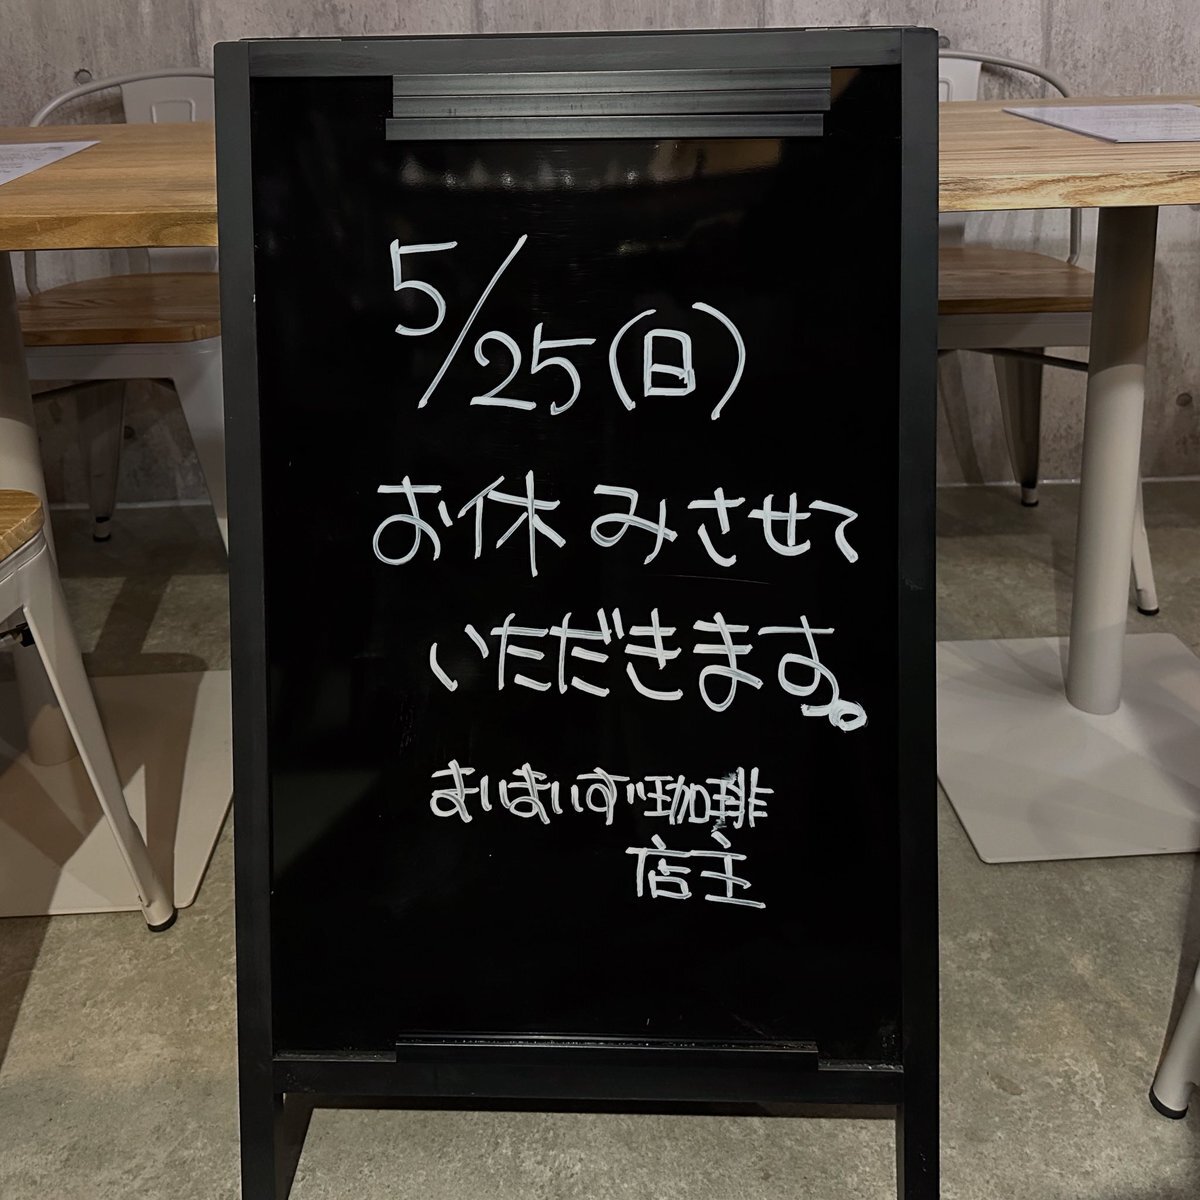 5/25(日)
お休みさせて
いただきます。
まいまいず珈琲
店主